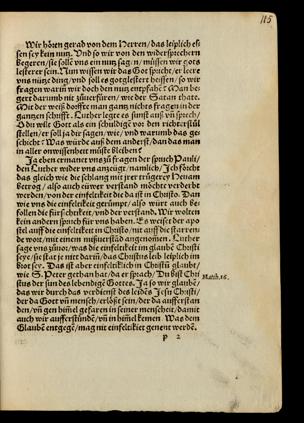 115
Wir hören gerad von dem Herren/ das leiplich es
sen sey kein nutz. Vnd so wir von den widersprechern
begeren/ sie sollē vns ein nutz sagen/ müssen wir gots
lesterer sein. Nun wissen wir das Got spricht/ er leere
vns nütze ding/ vnd soll es gotslestert heissen/ so wir
fragen warūm wir doch den nutz entpfahē? Man be
gert darumb nit zůuerfüren/ wie der Satan thate.
Mit der weiß dorfft man ganz nichts fragen in der
gantzen schrifft. Luther legt es sunst auß vn̄ sprach/
Du wilt Gott als ein schuldigē vor den richterstůl
stellen/ er soll ja dir sagen/ wie/ vnd warumb das ge
schicht? Was würde auß dem anderst/ dan das man
in aller onwissenheit müste bleiben?
Ja eben ermanet vns zů fragen der spruch Pauli/
den Luther wider vns anzeügt/ namlich/ Ich förcht
das gleich wie die schlang mit jrer trügerey Heuam
betrog/ also auch ewer verstand möchte verderbt
werden/ von der einfeltikeit die da ist in Christo. Dan
wie vns die einfeltikeit gerümpt/ also würt auch be-
follen die fürsichtikeit/ vnd der verstand. Wir wolten
kein andern spruch für vns haben. Es weiset der apo
stel auff die einfeltikeit in Christo/ nit auff die starren
de wort/ mit einem mißuerstād angenomen. Luther
sage vns zůuor/ was die einfeltikeit im glaubē Christi
seye/ sie stat je mit darin̄/ das Christus leib leiplich im
brot sey. Das ist aber einfeltikeit in Christū glaubē/
wie S. Peter gethan hat/ da er sprach/ Du bist Chri
stus der sun des lebendigē Gottes. Ja so wir glaubē/
Matth.16.
das wir durch das verdienst des leidēs Jesu Christi/
der da Got vn̄ mensch/ erlößt sein/ der da aufferstan
den/ vn̄ gen him̄el gefaren in seiner menscheit/ damit
auch wir aufferstūnden/ vn̄ in him̄el kemen. Was dem
Glaubē entgegē/ mag nit einfeltikeit genent werdē.
P 2